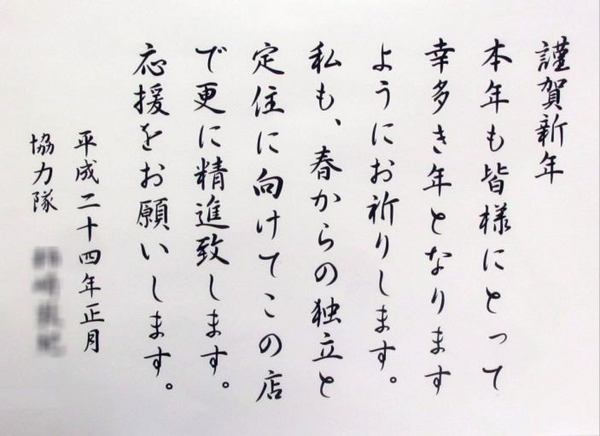 謹賀新年
本年も皆様にとって
幸多き年となります
ようにお祈りします。
私も、春からの独立と
定住に向けてこの店
で更に精進致します。
応援をお願いします。
平成二十四年正月
協力隊